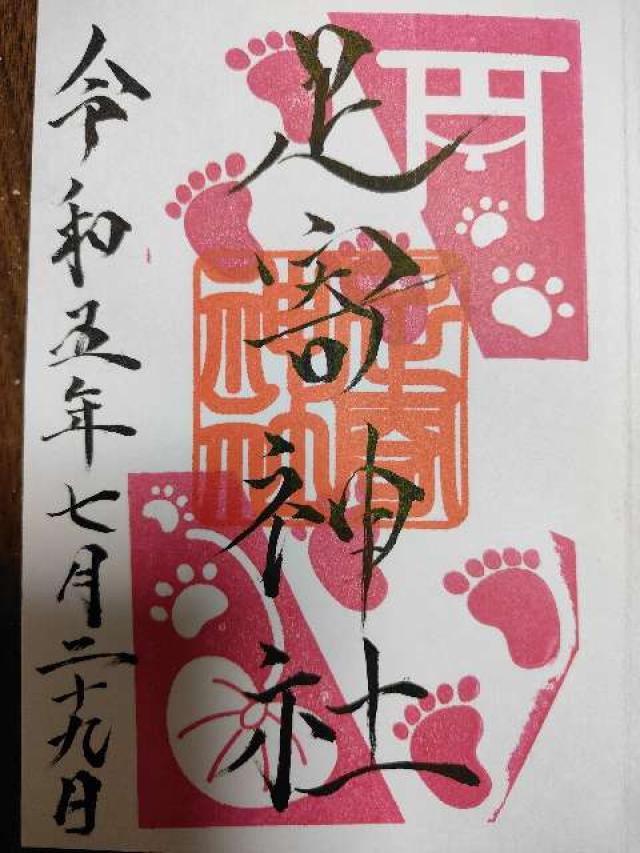 足寄神社
令和五年七月二十九日
足寄神社